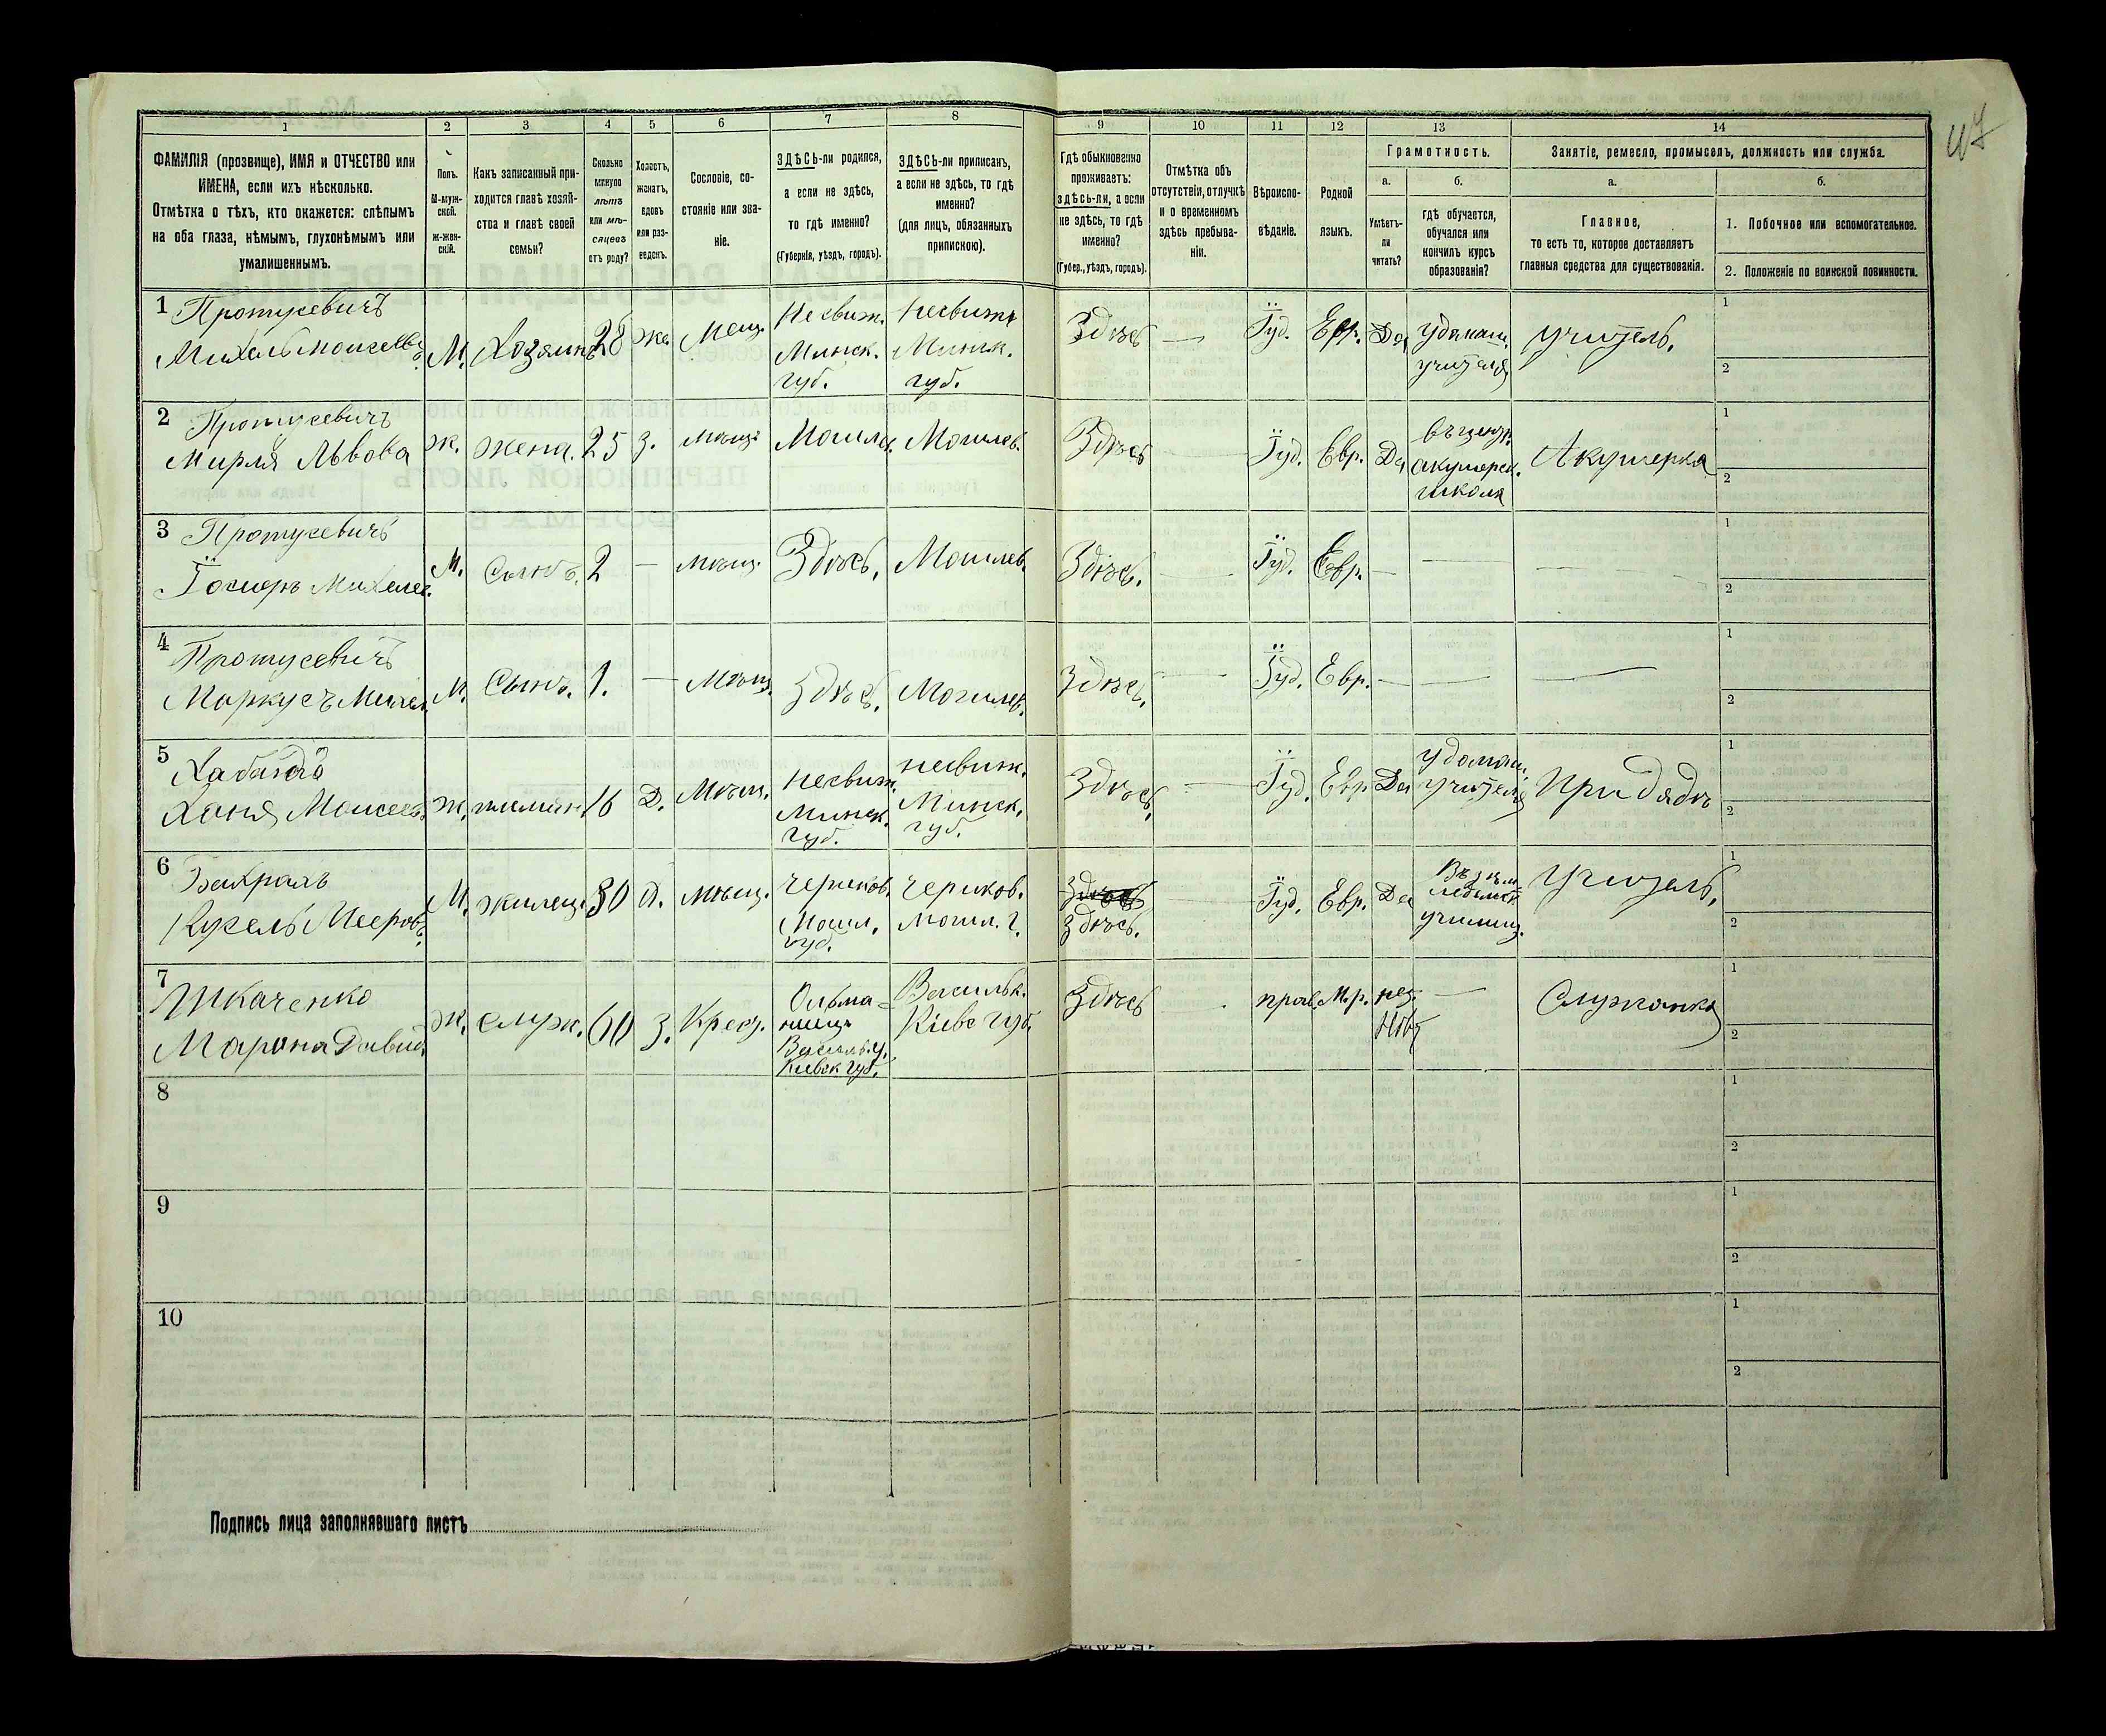 1
2
3
4
5
6
7
8
9
10
11
12
13
14
ФАМИЛІЯ (прозвище), ИМЯ и ОТЧЕСТВО или
ИМЕНА, если ихъ нѣсколько.
Отмѣтка о тѣхъ, кто окажется: слѣпымъ
на оба глаза, нѣмымъ, глухонѣмымъ или
умалишеннымъ.
Полъ.
М-муж-
ской.
ж-жен-
скій.
Какъ записанный при-
ходится главѣ хозяй-
ства и главѣ своей
семьи?
Сколько
минуло
лѣтъ
или мѣ-
сяцевъ
отъ роду?
Холостъ,
женатъ,
вдовъ
или раз-
веденъ.
Сословіе, со-
стояніе или зва-
ніе.
ЗДѢСЬ-ли родился,
а если не здѣсь,
то гдѣ именно?
(Губернія, уѣздъ, городъ).
ЗДѢСЬ-ли приписанъ,
а если не здѣсь, то гдѣ
именно?
(для лицъ, обязанныхъ
припискою).
Гдѣ обыкновенно
проживаетъ:
здѣсь-ли, а если
не здѣсь, то гдѣ
именно?
(Губер., уѣздъ, городъ).
Отмѣтка объ
отсутствіи, отлучкѣ
и о временномъ
здѣсь пребыва-
ніи.
Вѣроиспо-
вѣданіе.
Родной
языкъ.
Грамотность.
а.
б.
Умѣетъ-
ли
читать?
гдѣ обучается,
обучался или
кончилъ курсъ
образованія?
Занятіе, ремесло, промыселъ, должность или служба.
а.
б.
Главное,
то есть то, которое доставляетъ
главныя средства для существованія.
1. Побочное или вспомогательное.
2. Положеніе по воинской повинности.
1
М. Хозяинъ 28 Мещ.
Несвиж. Минск. губ.
Несвижъ Минск. губ.
Здѣсь — Іуд. Евр. Да
учителя
Учитель.
1
2
2
Мирля Львова
Ж. жена. 25 З. мѣщ.
Могилев. Могилев.
Здѣсь Іуд. Евр. Да
акушерск.
школа
Акушерка
1
2
3
М. Сынъ. 2 — мѣщ. Здѣсь. Могилев.
Здѣсь. Іуд. Евр. —
1
2
4
Маркусъ
М. Сынъ. 1. — Мѣщ. Здѣсь. Могилев.
Здѣсь. Іуд. Евр. —
1
2
5
Ханя Моисеев.
Ж. племян. 16 Д. Мѣщ.
Несвиж. Минск. губ.
Несвиж. Минск. губ.
Здѣсь. Іуд. Евр. Да
У домаш.
учителя
При дядѣ
1
2
6
Кусель Мееровъ
М. жилец. 30 мѣщ.
Чериков. Могил. губ.
Чериков. Могил. г.
Здѣсь
Здѣсь. Іуд. Евр. Да
училищ.
Учитель.
1
2
7
Ткаченко
Ж. служ. 60 З. Крест.
Васильк. у.
Кіевск. губ.
Васильк.
Кіевс губ.
Здѣсь прав. М.р. нет.
Нѣтъ
Служанка
1
2
8
1
2
9
1
2
10
1
2
Подпись лица заполнявшаго листъ